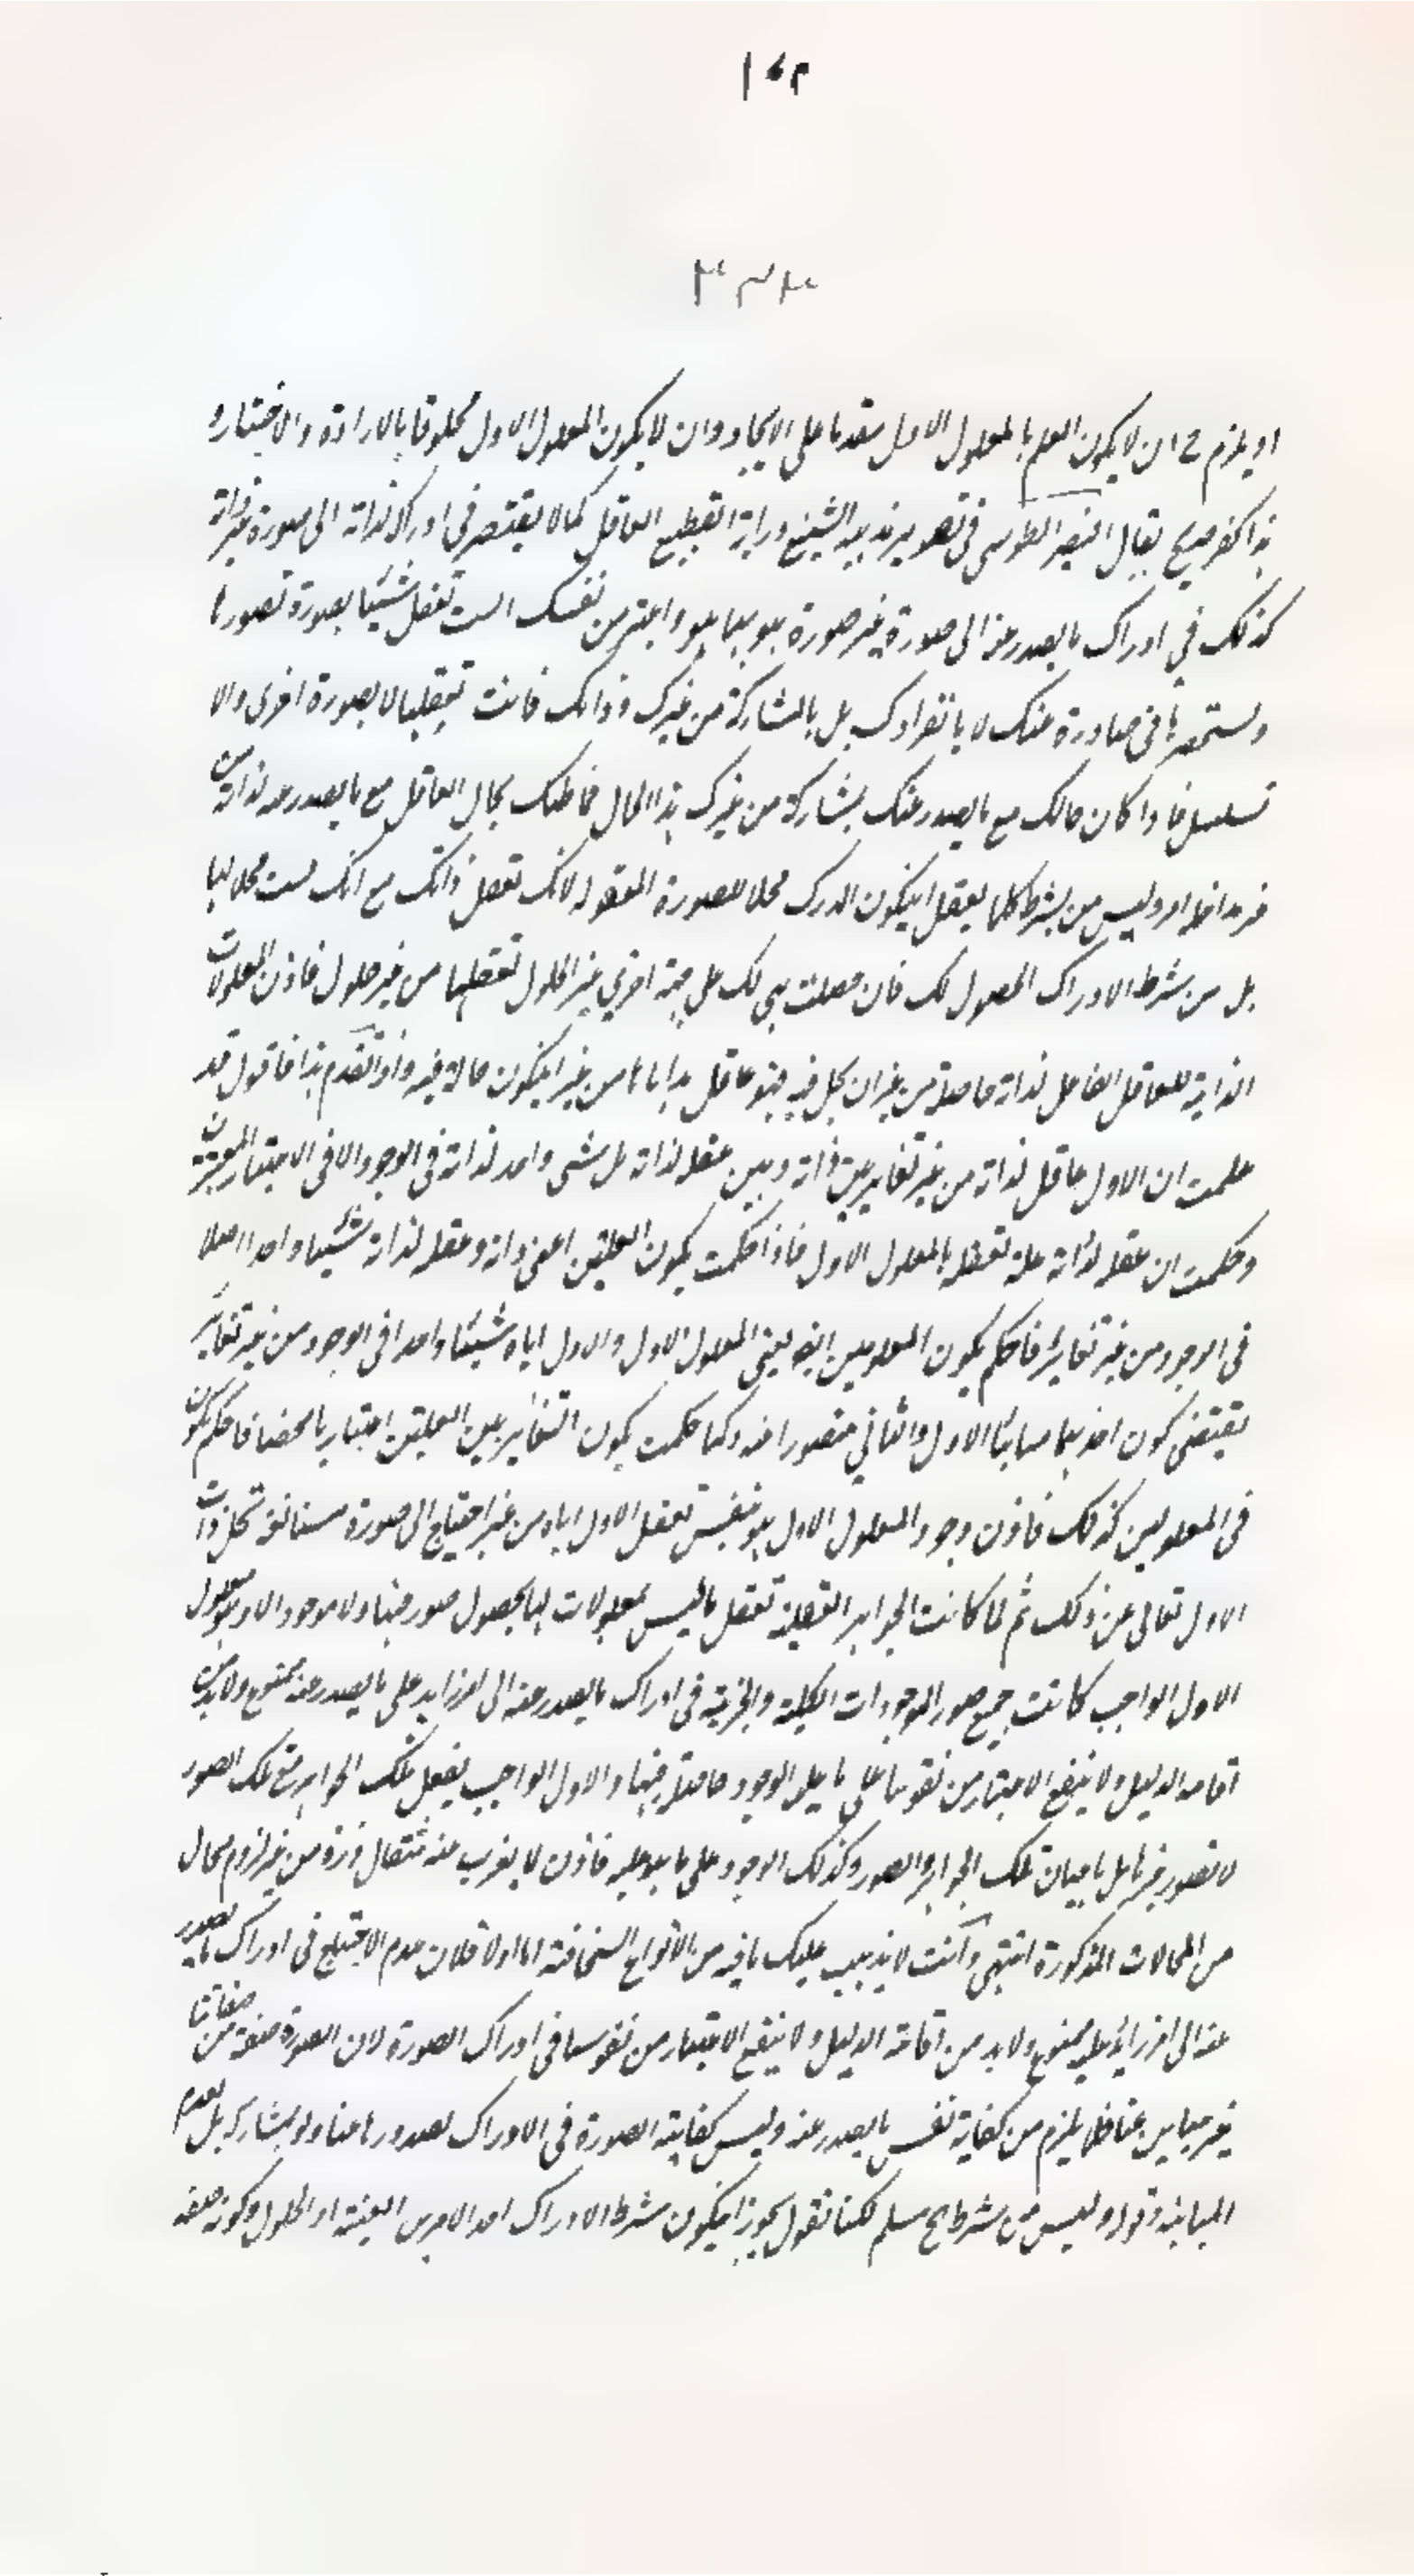 او يلزم ح ان لا يكون العلم بالمعلول الاول مقدما على الايجاد وان لا يكون المعلول الاول مخلوقا بالارادة والاختيار و
هذا كفر صريح يقال النصير الطوسي في تصوير مذهب الشيخ العاقل كما لا يفتقر في ادراك لذاته الى صورة غير ذاته
كذلك في ادراك ما يصدر عنه الى صورة غير صورة هو بها هو واعتبر من نفسك الست تعقل شيئا بصورة تصورها
ولستحضرها فى صادرة عنك لا بانفرادك بل بالمشاركة من غيرك و ذانك فانت تعقلها لا بصورة اخرى والا
تسلسل فاذا كان حالك مع ما يصدر عنك بمشاركة من غيرك هذا الحال فما ظنك بحال العاقل مع ما يصدر عنه لذاته من
غير مداخلة امر وليس من شرط كلما يعقل ان يكون المدرك محلا للصورة المعقولة لانك تعقل ذاتك مع انك لست محلا لها
بل من شرط الادراك الحصول لك فان حصلت هي لك على جهة اخرى غير الحلول تعقلها من غير حلول فاذن المعلولات
الذاتية للعاقل الفاعل لذاته حاصلة من غير ان يحل فيه فهو عاقل اياها من غير ان يكون حالة فيه واذ تقدم هذا فاقول قد
علمت ان الاول عاقل لذاته من غير تغاير بين ذاته وبين عقله لذاته بل شى واحد لذاته فى الوجود الا فى الاعتبار
وحكمت ان عقله لذاته علة تعقله بالمعلول الاول فاذا حكمت بكون العلتين اعنى ذاته وعقله لذاته شيئا واحدا اصلا
فى الوجود من غير تغاير فاحكم بكون المعلومين ايضا يعنى المعلول الاول والاول اياه شيئا واحدا فى الوجود من غير تغاير
يقتضى كون احدهما مباينا للاول والثاني متصورا فيه وكما حكمت بكون التغاير بين العلتين اعتباريا محضا فاحكم بكونه
فى المعلولين كذلك فاذن وجود المعلول الاول هو نفس تعقل الاول اياه من غير احتياج الى صورة مستانفة تحل ذات
الاول تعالى عن ذلك ثم لما كانت الجواهر العقلية تعقل ما ليس بمعلولات لها بحصول صور فيها ولا موجود الا وهو معلول
الاول الواجب كانت جميع صور الموجودات الكلية والجزئية فى ادراك ما يصدر عنه الى امر زايد على ما يصدر عنه ممنوع ولا بد من
اقامة الدليل ولا ينفع الاعتبار من نفوسنا على ما عليه الوجود حاصلة فيها والاول الواجب يعقل تلك الجواهر مع تلك الصور
لا بصور غيرها بل باعيان تلك الجواهر والصور وكذلك الوجود على ما هو عليه فاذن لا يعزب عنه مثقال ذرة من غير لزوم محال
من المحالات المذكورة انتهى وانت لا يذهب عليك ما فيه من الانواع السخافة اما اولا فلان عدم الاحتياج فى ادراك ما يصدر
عنه الى امر زائد عليه ممنوع ولا بد من اقامة الدليل ولا ينفع الاعتبار من نفوسنا فى ادراك الصورة لان الصورة صفة من صفاتنا
غير مباين عنا فلا يلزم من كفاية نفس ما يصدر عنه وليس كفاية الصورة فى الادراك لصدورها عنا ولو بمشاركة بل لعدم
المباينة وقوله وليس من شرط الخ مسلم لكنا نقول يجوز ان يكون شرط الادراك احد الامرين العينية او الحلول وكونه صفة